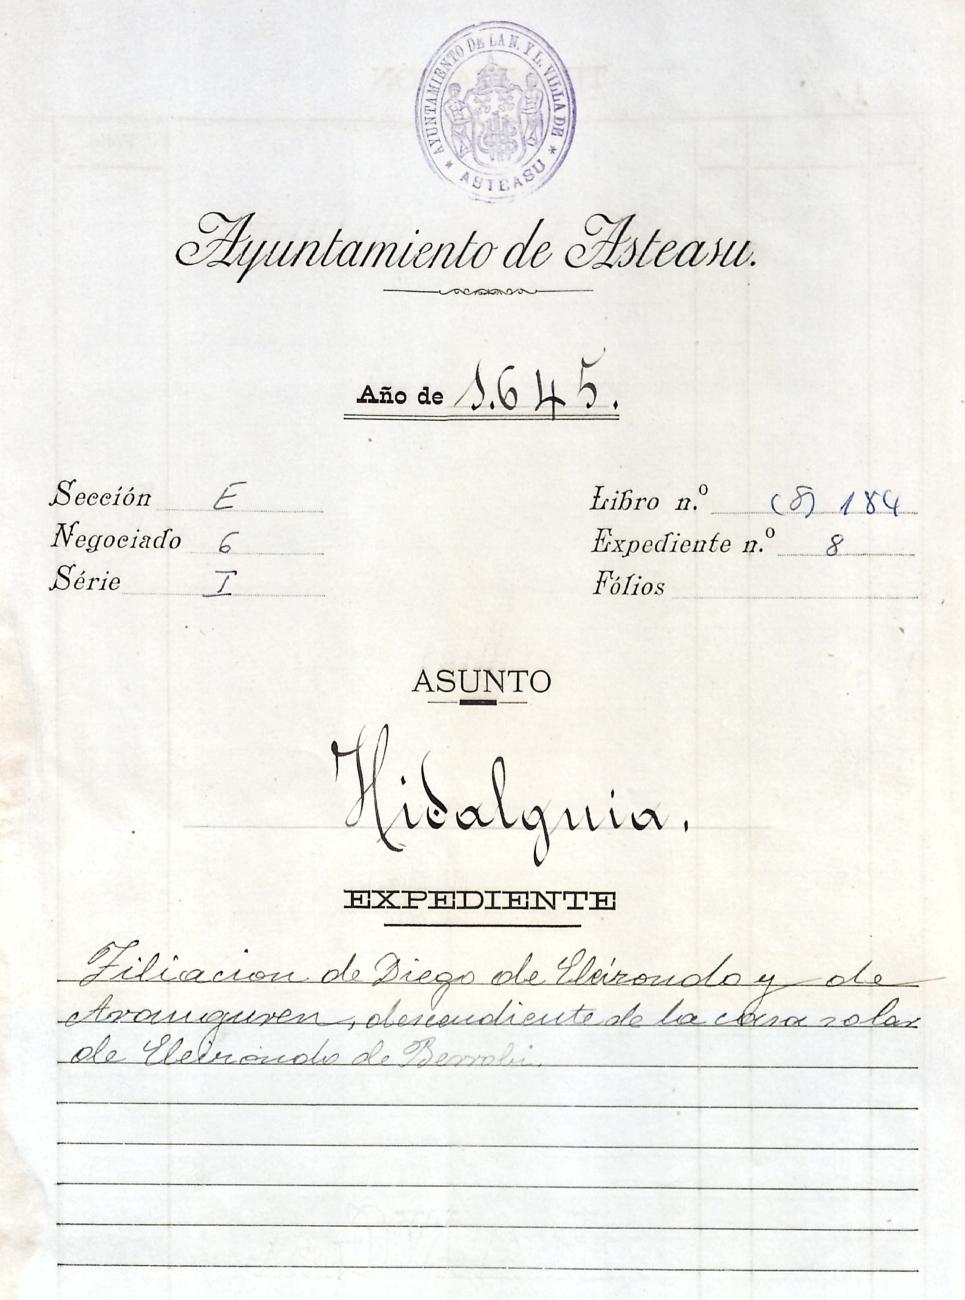 AYUNTAMIENTO DE LA N. Y L. VILLA DE
* ASTEASU *
Ayuntamiento de Asteasu.
Año de 1.645.
Sección E
Negociado 6
Série I
Libro n.º (8) 184
Expediente n.º 8
Fólios
ASUNTO
Hidalguia.
EXPEDIENTE
Filiacion de Diego de Eleizondo y de
Aranguren, descendiente de la casa solar
de Eleizondo de Berrobi.